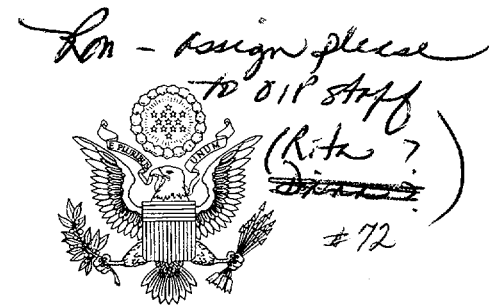 Ron - assign please
to OIP staff
(Rita ?
E PLURIBUS UNUM
#72